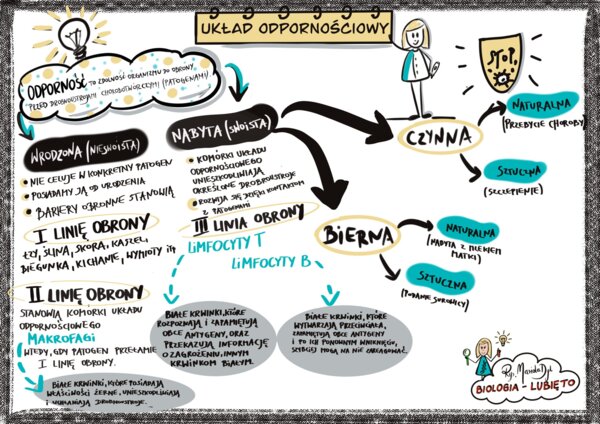 UKŁAD ODPORNOŚCIOWY
ODPORNOŚĆ TO ZDOLNOŚĆ ORGANIZMU DO OBRONY
PRZED DROBNOUSTROJAMI CHOROBOTWÓRCZYMI (PATOGENAMI)
WRODZONA (NIESWOISTA)
• NIE CELUJE W KONKRETNY PATOGEN
• POSIADAMY JĄ OD URODZENIA
• BARIERY OBRONNE STANOWIĄ
I LINIĘ OBRONY
ŁZY, ŚLINA, SKÓRA, KASZEL,
BIEGUNKA, KICHANIE, WYMIOTY itp
II LINIĘ OBRONY
STANOWIĄ KOMÓRKI UKŁADU
ODPORNOŚCIOWEGO
MAKROFAGI
WTEDY, GDY PATOGEN PRZEŁAMIE
I LINIĘ OBRONY.
BIAŁE KRWINKI, KTÓRE POSIADAJĄ
WŁAŚCIWOŚCI ŻERNE, UNIESZKODLIWIAJĄ
I WCHŁANIAJĄ DROBNOUSTROJE.
NABYTA (SWOISTA)
• KOMÓRKI UKŁADU
ODPORNOŚCIOWEGO
UNIESZKODLIWIAJĄ
OKREŚLONE DROBNOUSTROJE
• ROZWIJA SIĘ DZIĘKI KONTAKTOM
Z PATOGENAMI
III LINIA OBRONY
LIMFOCYTY T
LIMFOCYTY B
BIAŁE KRWINKI, KTÓRE
ROZPOZNAJĄ I ZAPAMIĘTUJĄ
OBCE ANTYGENY, ORAZ
PRZEKAZUJĄ INFORMACJĘ
O ZAGROŻENIU INNYM
KRWINKOM BIAŁYM.
BIAŁE KRWINKI, KTÓRE
WYTWARZAJĄ PRZECIWCIAŁA,
ZAPAMIĘTUJĄ OBCE ANTYGENY
I PO ICH PONOWNYM WNIKNIĘCIU,
SZYBCIEJ MOGĄ NA NIE ZAREAGOWAĆ.
STOP
CZYNNA
NATURALNA
(PRZEBYCIE CHOROBY)
SZTUCZNA
(SZCZEPIENIE)
BIERNA
NATURALNA
(NABYTA Z MLEKIEM
MATKI)
SZTUCZNA
(PODANIE SUROWICY)
BIOLOGIA - LUBIĘ TO